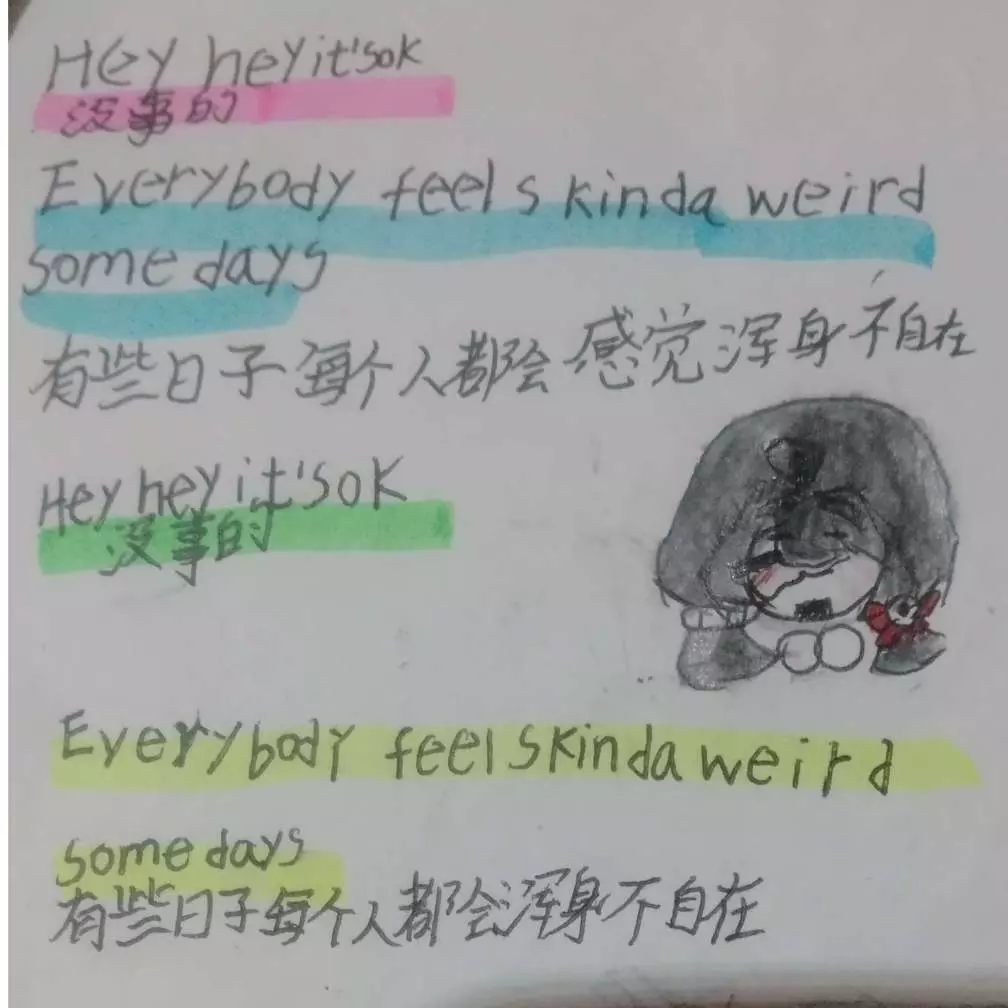 Hey hey it's ok
没事的
Everybody feels kinda weird
some days
有些日子每个人都会感觉浑身不自在
Hey hey it's ok
没事的
Everybody feels kinda weird
some days
有些日子每个人都会浑身不自在